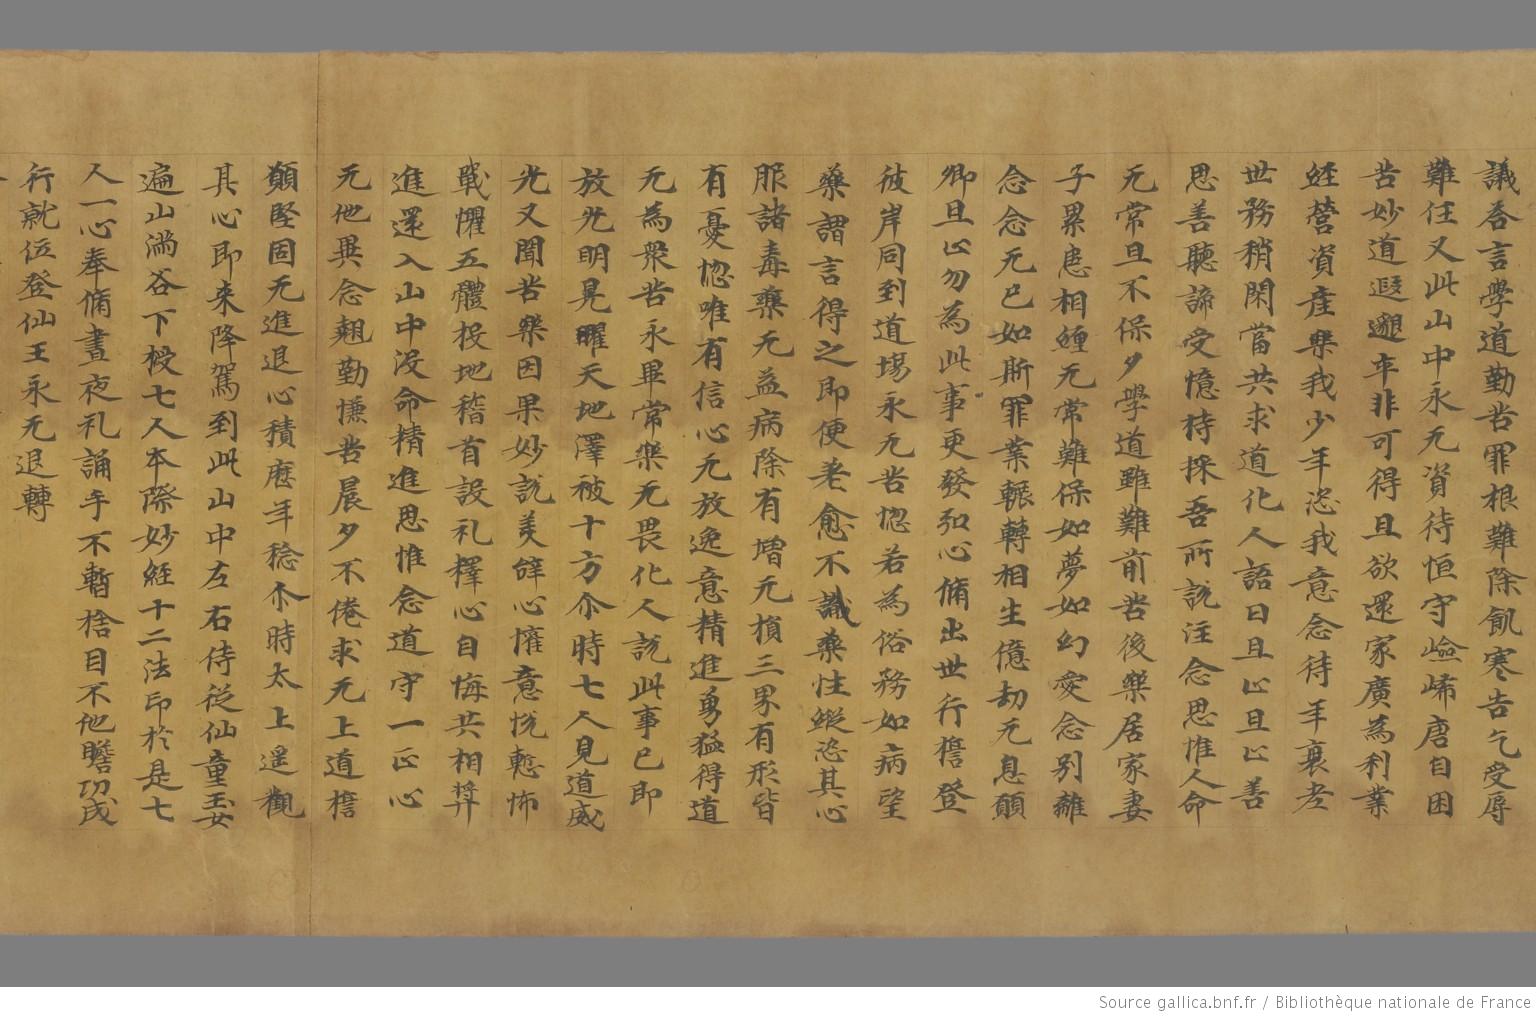 議各言學道勤苦罪根難除飢寒告乞受辱
難任又此山中永无資待恒守嶮崎唐自困
苦妙道遐邈卒非可得且欲還家廣為利業
經營資産樂我少年恣我意念待年衰老
世務稍閑當共求道化人語曰且止且止善
思善聽諦受憶持採吾所説注念思惟人命
无常旦不保夕學道雖難前苦後樂居家妻
子累患相纏无常難保如夢如幻愛念別離
念念无已如斯罪業輾轉相生億劫无息願
卿且止勿為此事更發弘心脩出世行擔登
彼岸同到道場永无苦惚若為俗務如病望
藥謂言得之即便差愈不識藥性縱恣其心
服諸毒藥无益病除有增无損三界有形皆
有憂惚唯有信心无放逸意精進勇猛得道
无為衆苦永畢常樂无畏化人説此事已即
放光明晃曜天地澤被十方尒時七人見道威
光又聞苦樂因果妙説美辭心懽意悦慙怖
戰懼五體投地稽首設礼擇心自悔共相獎
進還入山中没命精進思惟念道守一正心
无他異念翹勤慊苦晨夕不倦求无上道擔
願堅固无進退心積歷年稔尒時太上遥觀
其心即来降駕到此山中左右侍從仙童玉女
遍山滿谷下授七人本際妙經十二法印於是七
人一心奉脩晝夜礼誦手不暫捨目不他瞻功成
行就位登仙王永无退轉
Source gallica.bnf.fr / Bibliothèque nationale de France